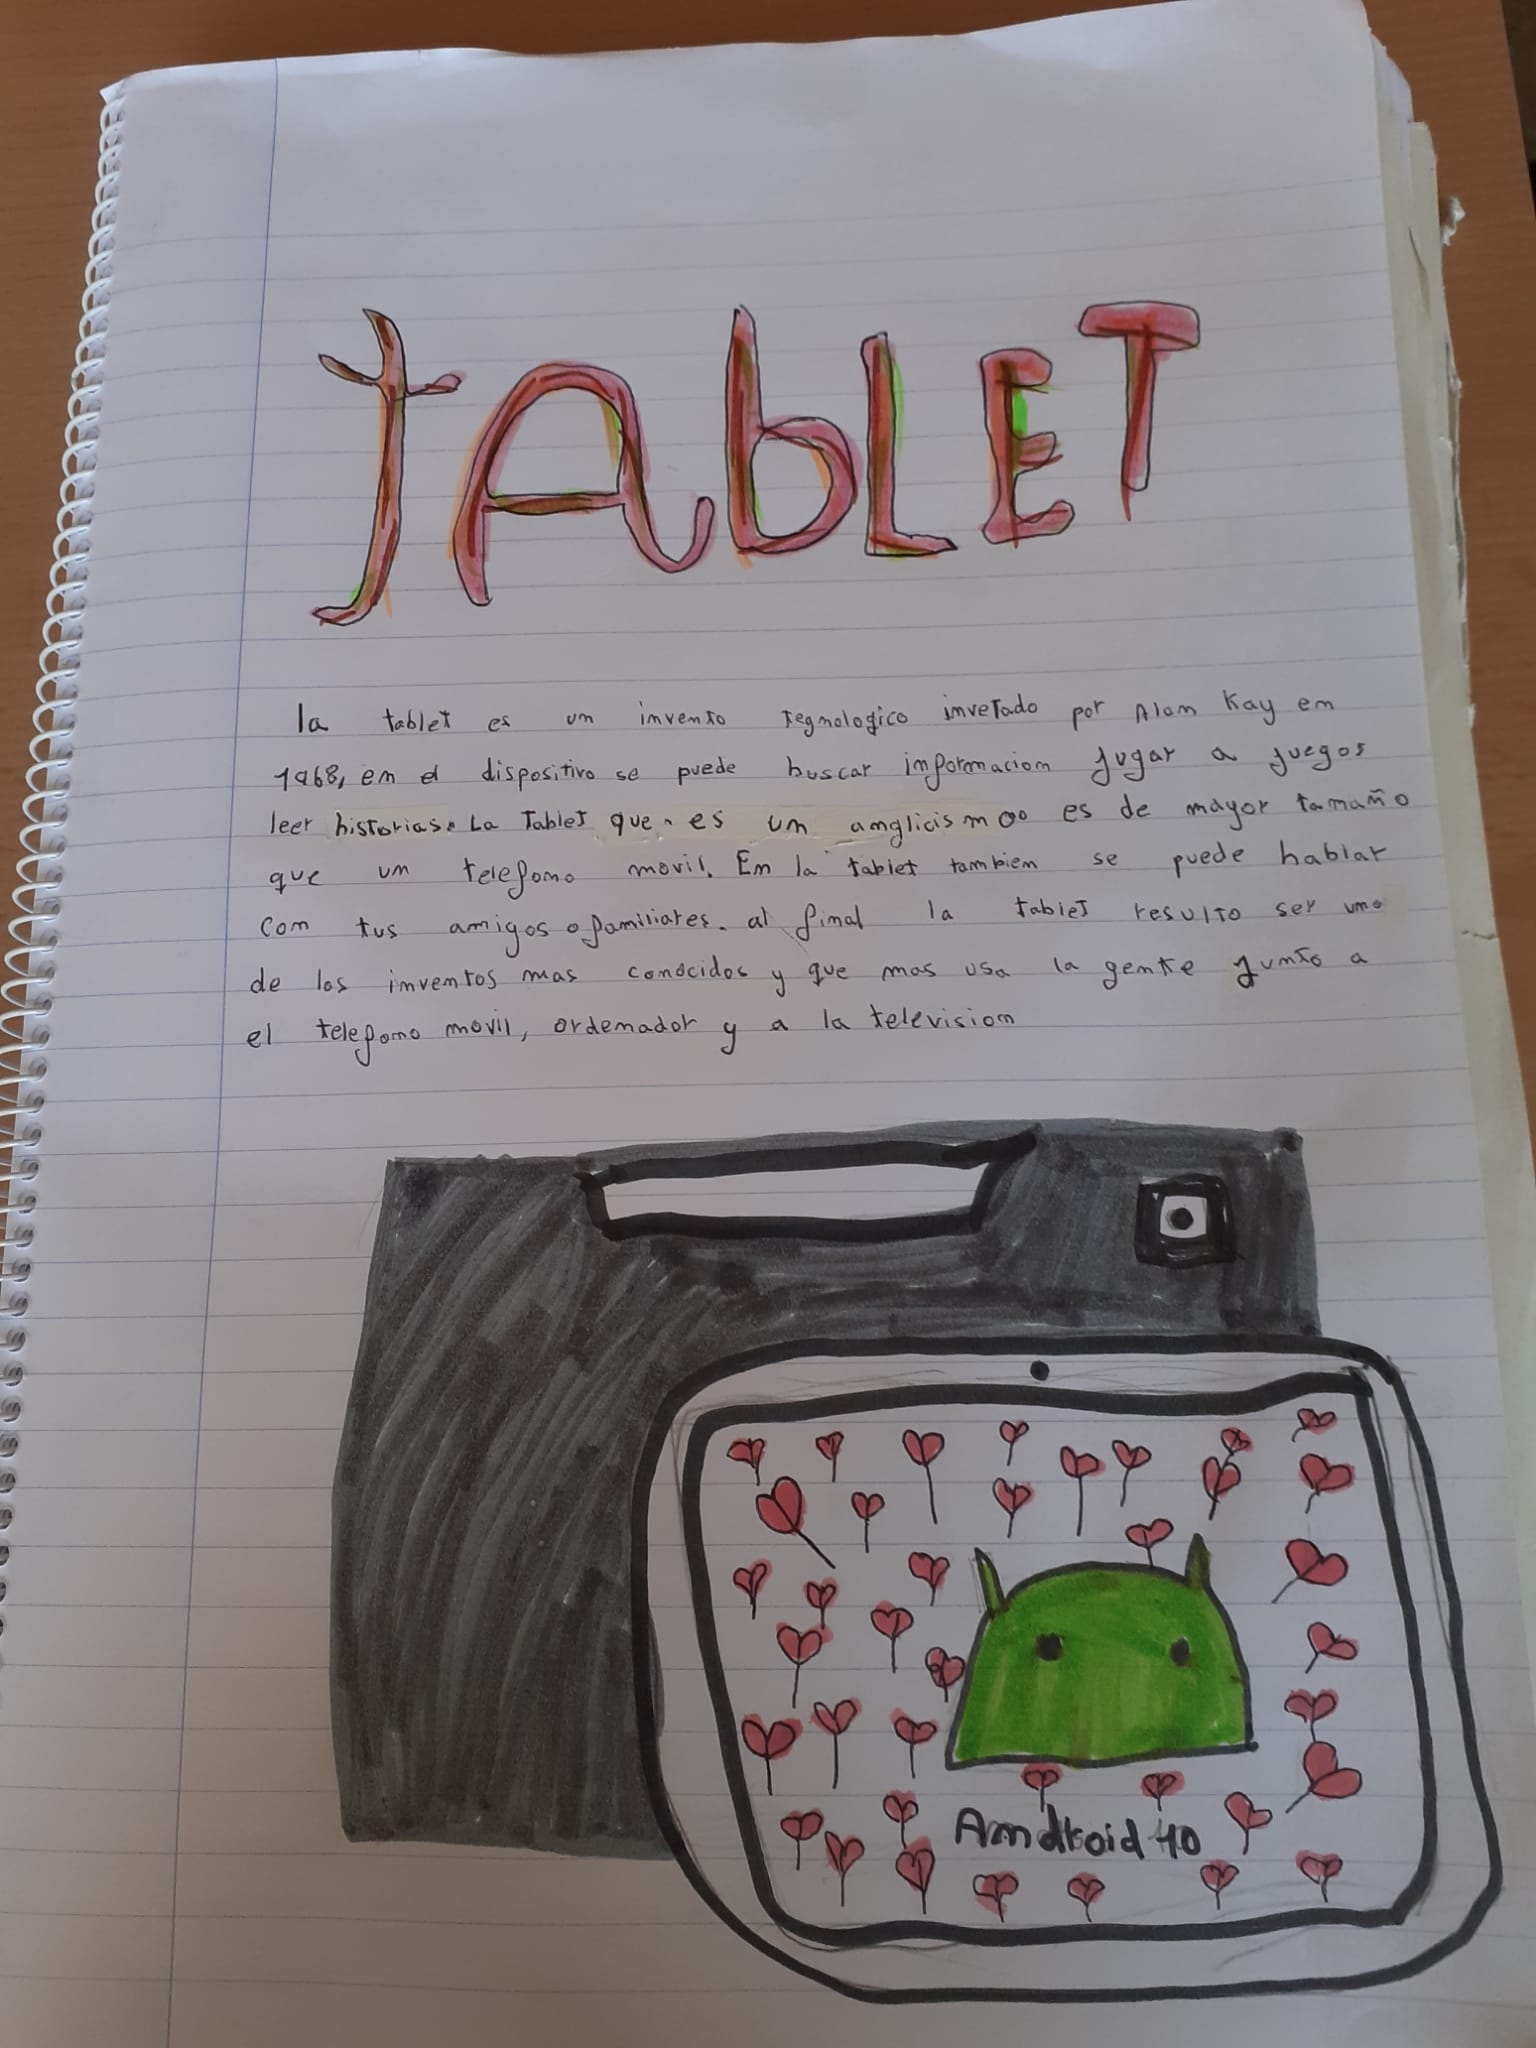 tAbLET
la tablet es un invento tegnologico invetado por Alan Kay en
1968, en el dispositivo se puede buscar informacion jugar a juegos
leer historias. La tablet que es un anglicismo es de mayor tamaño
que un telefono movil. En la tablet tambien se puede hablar
con tus amigos o familiares. al final la tablet resulto ser uno
de los inventos mas conocidos y que mas usa la gente junto a
el telefono movil, ordenador y a la television
Android 10